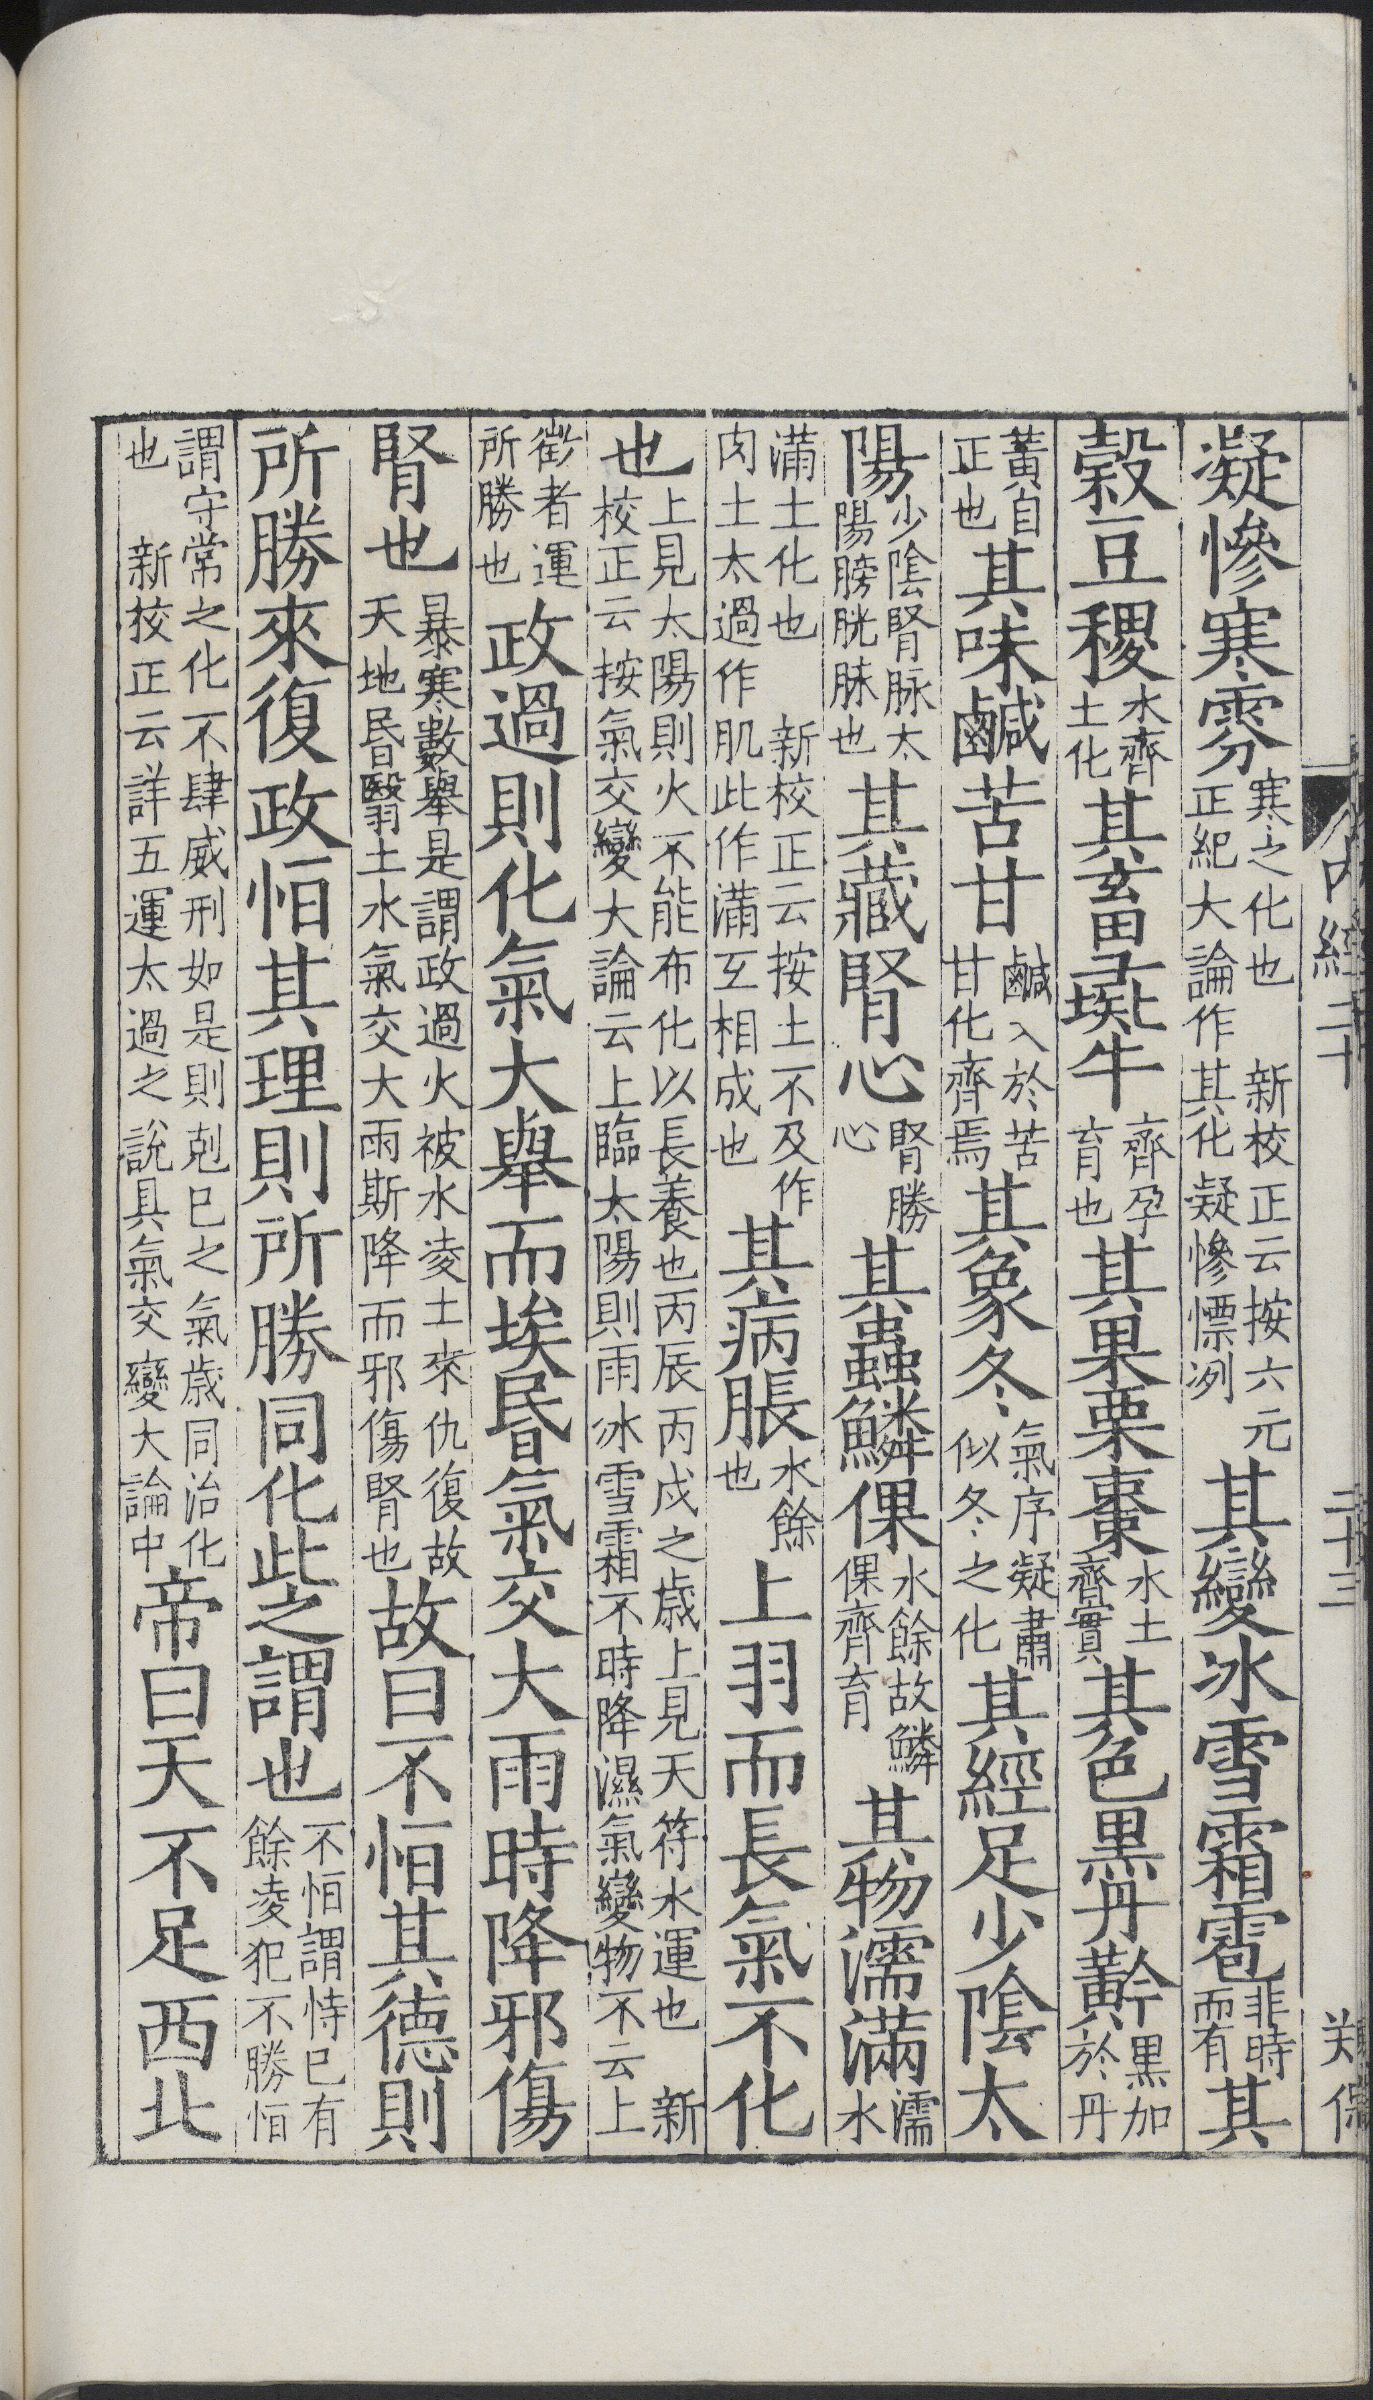 内經二十 二十三
凝慘寒雰寒之化也 新校正云按六元正紀大論作其化凝慘慄冽其變冰雪霜雹非時而有其
穀豆稷水齊土化其畜彘牛齊孕育也其果栗棗水土齊實其色黑丹黅黑加於丹
黃自正也其味鹹苦甘鹹入於苦甘化齊焉其象冬氣序凝肅似冬之化其經足少陰太
陽少陰腎脉太陽膀胱脉也其藏腎心腎勝心其蟲鱗倮水餘故鱗倮齊育其物濡滿濡水
滿土化也 新校正云按土不及作肉土太過作肌此作滿互相成也其病脹水餘也上羽而長氣不化
也上見太陽則火不能布化以長養也丙辰丙戌之歲上見天符水運也 新校正云按氣交變大論云上臨太陽則雨冰雪霜不時降濕氣變物不云上
徵者運所勝也政過則化氣大舉而埃昏氣交大雨時降邪傷
腎也暴寒數舉是謂政過火被水凌土來仇復故天地昏翳土水氣交大雨斯降而邪傷腎也故曰不恒其德則
所勝來復政恒其理則所勝同化此之謂也不恒謂恃已有餘凌犯不勝恒
謂守常之化不肆威刑如是則剋已之氣歲同治化也 新校正云詳五運太過之說具氣交變大論中帝曰天不足西北